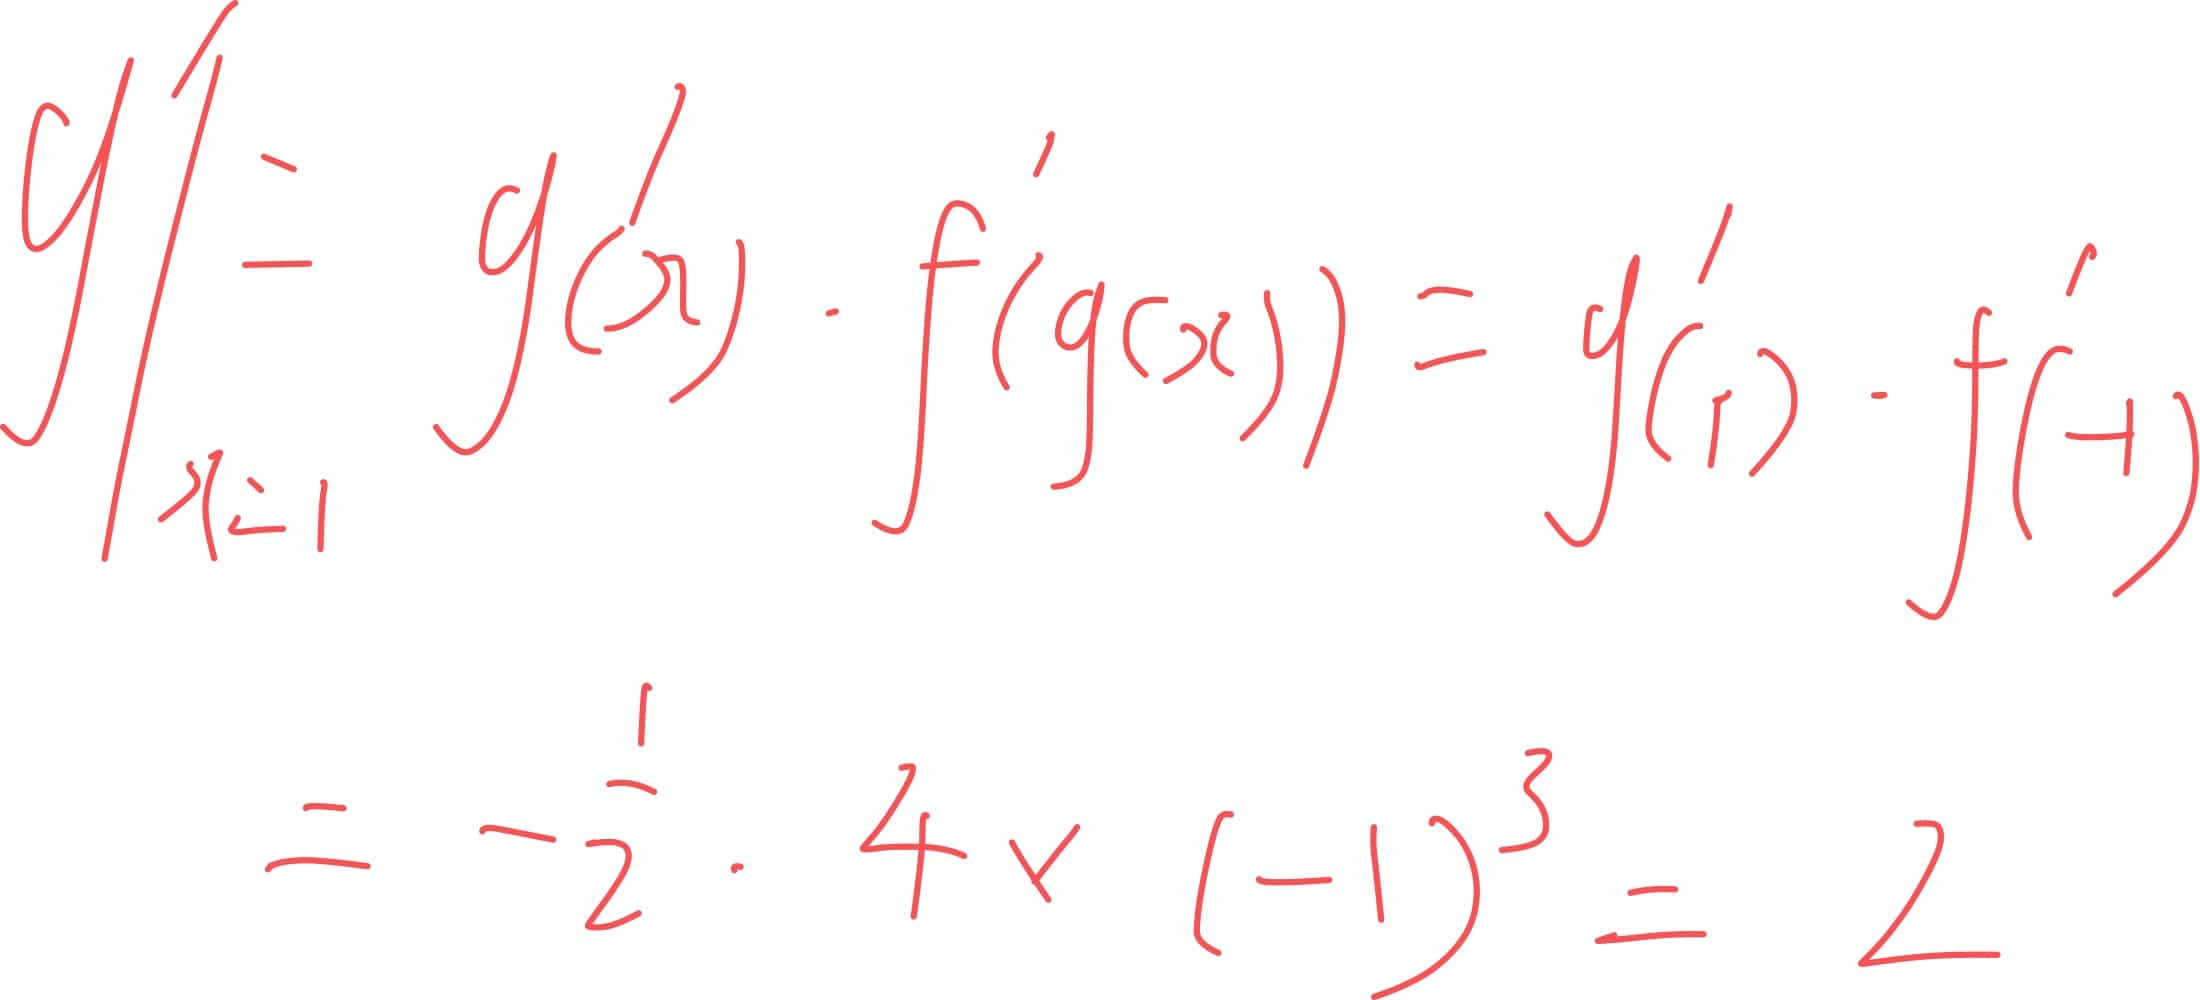 y'|x=1 = g'(x) · f'(g(x)) = g'(1) · f'(-1)
= -1/2 · 4 × (-1)³ = 2